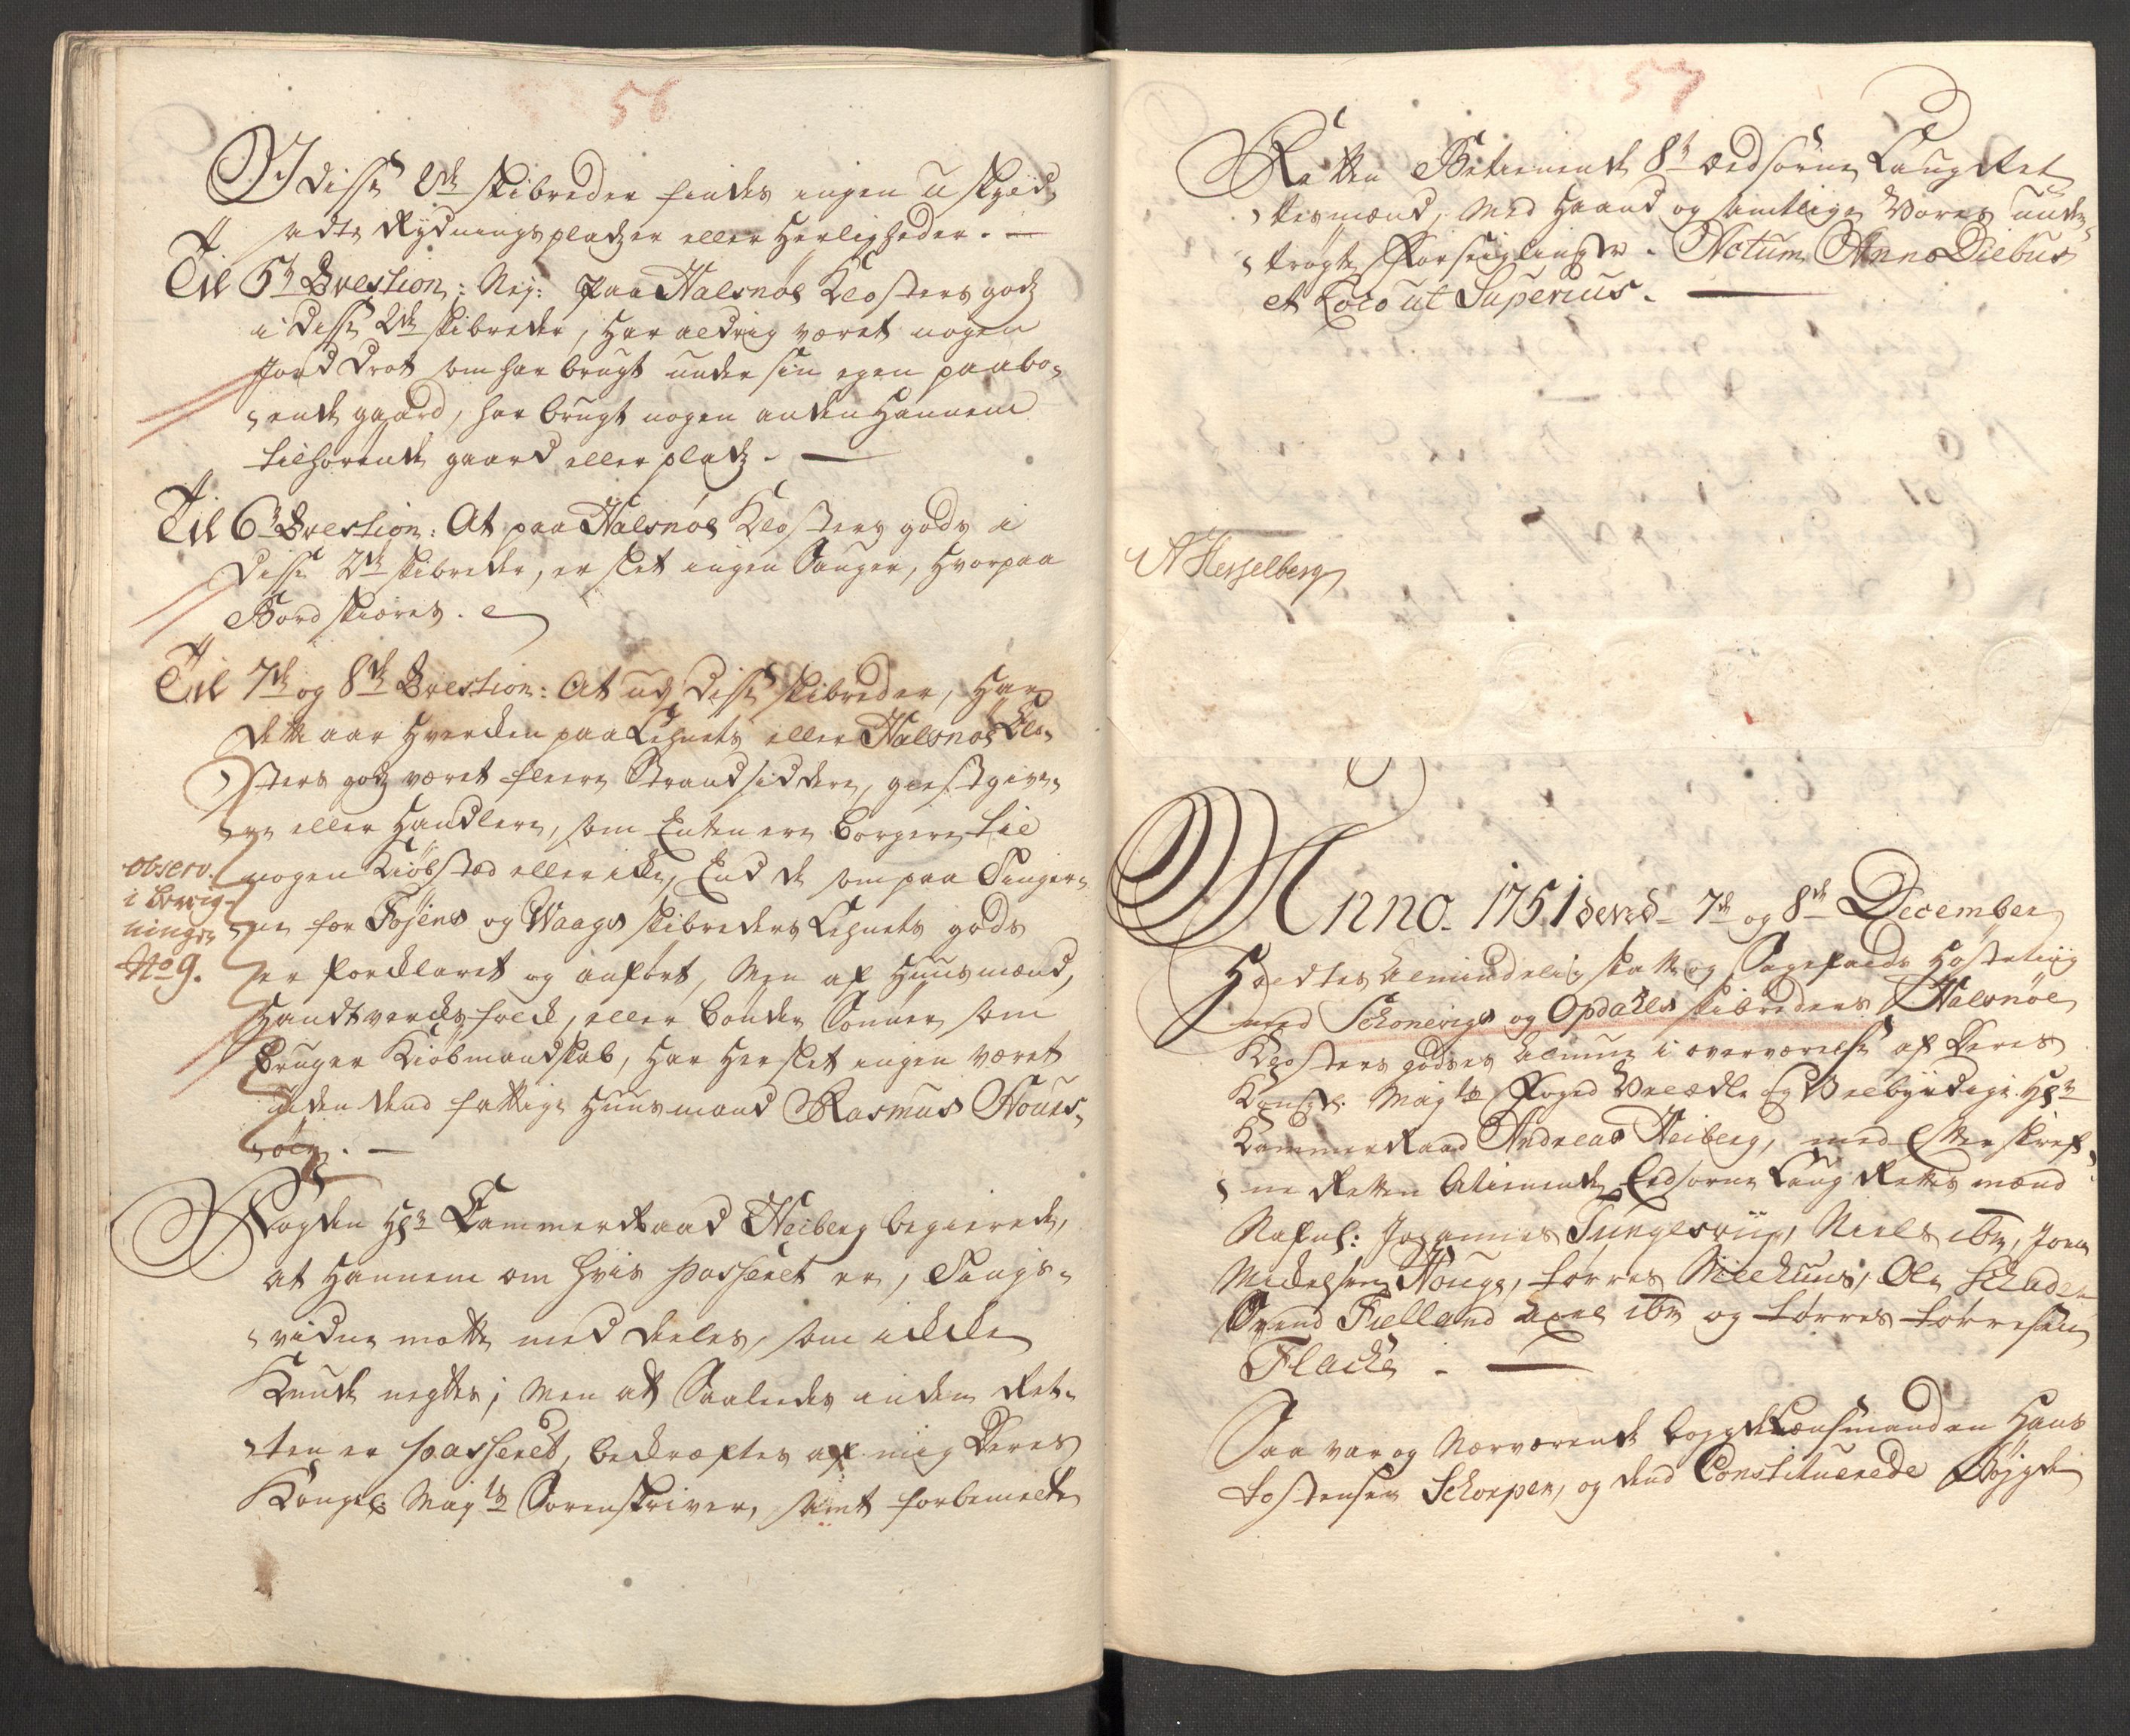 56
I disse 2de skibreder findes ingen uskyld
satte Rydningspladzer eller Herligheder. —
Til 5te Qvestion: Nej: paa Halsnøe Klosters godz
i disse 2de skibreder, har aldrig været nogen
Jord Drot som har brugt under sin egen paabo-
ende gaard, har brugt nogen anden Hannem
tilhørende gaard eller pladz. —
Til 6te Qvestion: At paa Halsnøe Klosters gods i
disse 2de skibreder, er slet ingen Sauger, hvorpaa
Bord skiæres.
Til 7de og 8de Qvestion: At udj disse skibreder, har
dette aar hverchen paa Lehnets eller Halsnøe Klo-
sters godz været fleere Strandsiddere, giestgive-
re eller Handlere, som Enten ere borgere til
nogen Kiøbstæd eller ikke, End de som paa Tinge-
ne for Føyens og Waags skibreders Lehnets gods
er forklaret og anført, Men af Huusmænd,
Handtverchsfolck, eller bønder Sønner som
bruger Kiøbmandskab, har her slet ingen været
uden dend fattige Huusmand Rasmus Houes-
øen. —
observ.
i bevig-
ningen
No 9.
Fogden Hr Cammerraad Heiberg begierede,
at Hannem om hvis passeret er, Tings-
vidne motte meddeeles, som ickche
Kunde negtes; Men at Saaledes inden Ret-
ten er passeret, bekræftes af mig Deres
Kongel. Mayts Sorenskriver, samt forbemelte
57
Retten Betienende 8te Eedsorne Laug Ret
tesmænd, med Haand og samtlige Vores under-
trögte Forseiglinger. Actum Anno Diebus
et Loco ut Superius. —
A Hesselberg
Anno 1751 dend 7de og 8de December
Holdtes almindelig skatte og Sagefalds Høsteting
med Schonevigs og Opdahls skibreders Halsnöe
Klosters godses almue i overværelse af Deres
Kongl. Mayts Foged Velædle og Velbyrdige Hr
Kammerraad Andreas Heiberg, med Efterskref-
ne Retten betienende Eedsorne Laug Rettes mænd
Nafnl: Johannes Tungesviig, Niels ibm, Jon
Michelsen Houge, Torres Miehuus, Ole Schade
Svend Fielland Axel ibm og Torres Torresen
Flache. —
Saa var og Nærværende bøyde Lensmanden Hans
Tostensen Schorpen, og dend Constituerede Bøyde